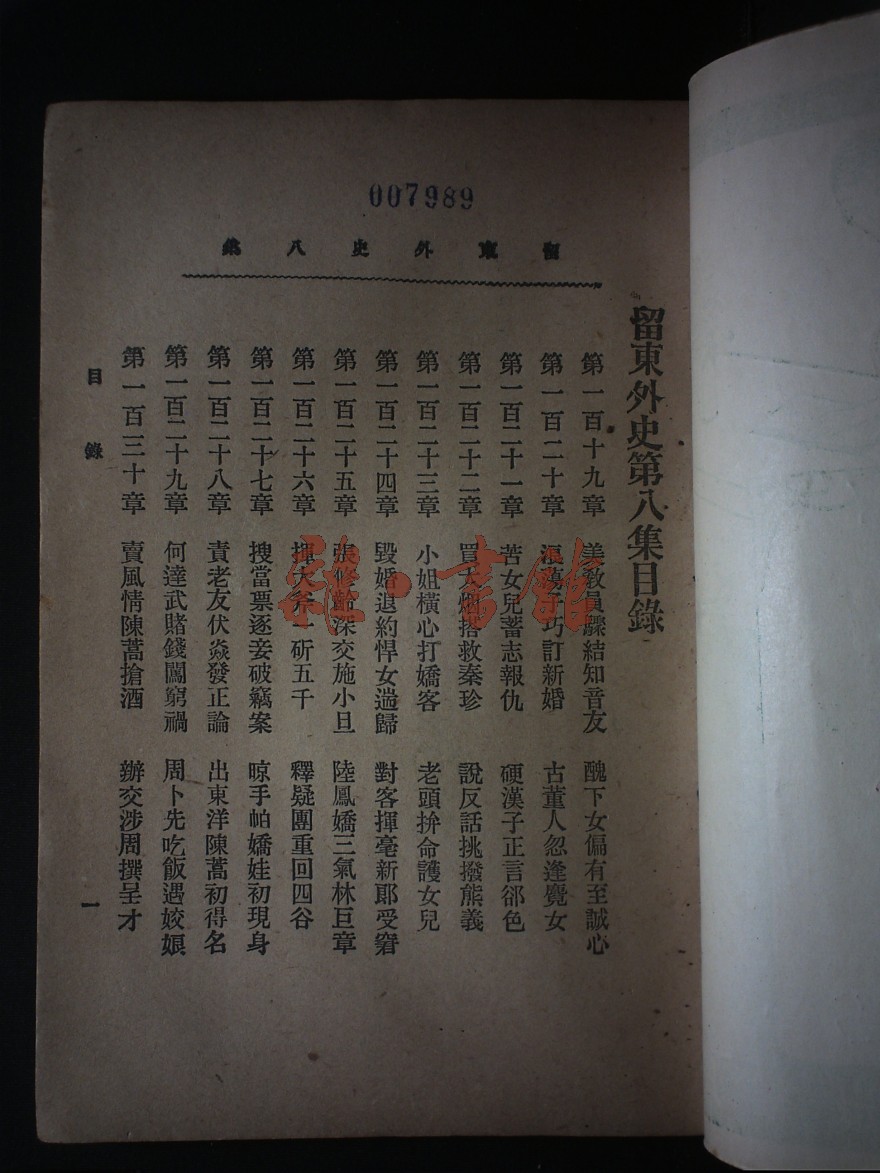 007989
留東外史八集
留東外史第八集目錄
第一百十九章 美教員驟結知音友 醜下女偏有至誠心
第一百二十章 浪蕩子巧訂新婚 古董人忽逢魔女
第一百二十一章 苦女兒蓄志報仇 硬漢子正言卻色
第一百二十二章 買大烟搭救秦珍 說反話挑撥熊義
第一百二十三章 小姐橫心打嬌客 老頭拚命護女兒
第一百二十四章 毀婚退約悍女遄歸 對客揮毫新郎受窘
第一百二十五章 張修齡深交施小旦 陸鳳嬌三氣林巨章
第一百二十六章 揮大斧一斫五千 釋疑團重回四谷
第一百二十七章 搜當票逐妾破竊案 晾手帕嬌娃初現身
第一百二十八章 責老友伏焱發正論 出東洋陳蒿初得名
第一百二十九章 何達武賭錢闖窮禍 周卜先吃飯遇姣娘
第一百三十章 賣風情陳蒿搶酒 辦交涉周撰呈才
目錄
一
雜·書館